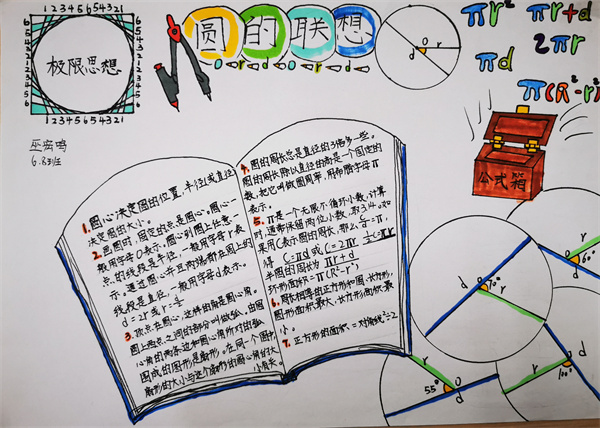 圆的联想
1 2 3 4 5 6 5 4 3 2 1
极限思想
1 2 3 4 5 6 5 4 3 2 1
6.8班
O r d O r d
r
d
πr²
πr+d
2πr
πd
π(R²-r²)
公式箱
1. 圆心决定圆的位置,半径(或直径)
决定圆的大小。
2. 画圆时,固定的点是圆心。圆心一
般用字母O表示。圆心到圆上任意一
点的线段是半径,一般用字母r表
示。通过圆心并且两端都在圆上的
线段是直径。一般用字母d表示。
d=2r或r=d/2
3. 顶点在圆心,这样的角是圆心角。
圆上两点之间的部分叫做弧,由圆
心角的两条边和圆心角所对的弧
围成的图形是扇形。在同一个圆中,
扇形的大小与这个扇形的圆心角的大
小有关
4. 圆的周长总是直径的3倍多一些。
圆的周长除以直径的商是一个固定的
数,把它叫做圆周率,用希腊字母π
表示。
5. π是一个无限不循环小数,计算
时,通常保留两位小数,取3.14。如
果用C表示圆的周长,那么C/d=π,
得 C=πd或C=2πr
半圆的周长为πr+d
环形面积=π(R²-r²)
6. 周长相等的正方形和圆、长方形,
圆形面积最大,长方形面积最
小。
7. 正方形的面积=对角线²÷2
d
O
70°
r
d
60°
r
55°
O
d
r
O
d
100°